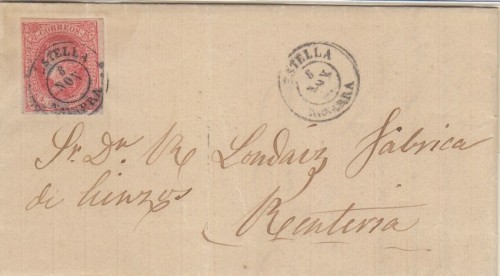 CORREOS
ESTELLA
8
NOV
NAVARRA
ESTELLA
8
NOV
NAVARRA
Sr. Dn. R Londaiz Fábrica
de lienzos
Renteria